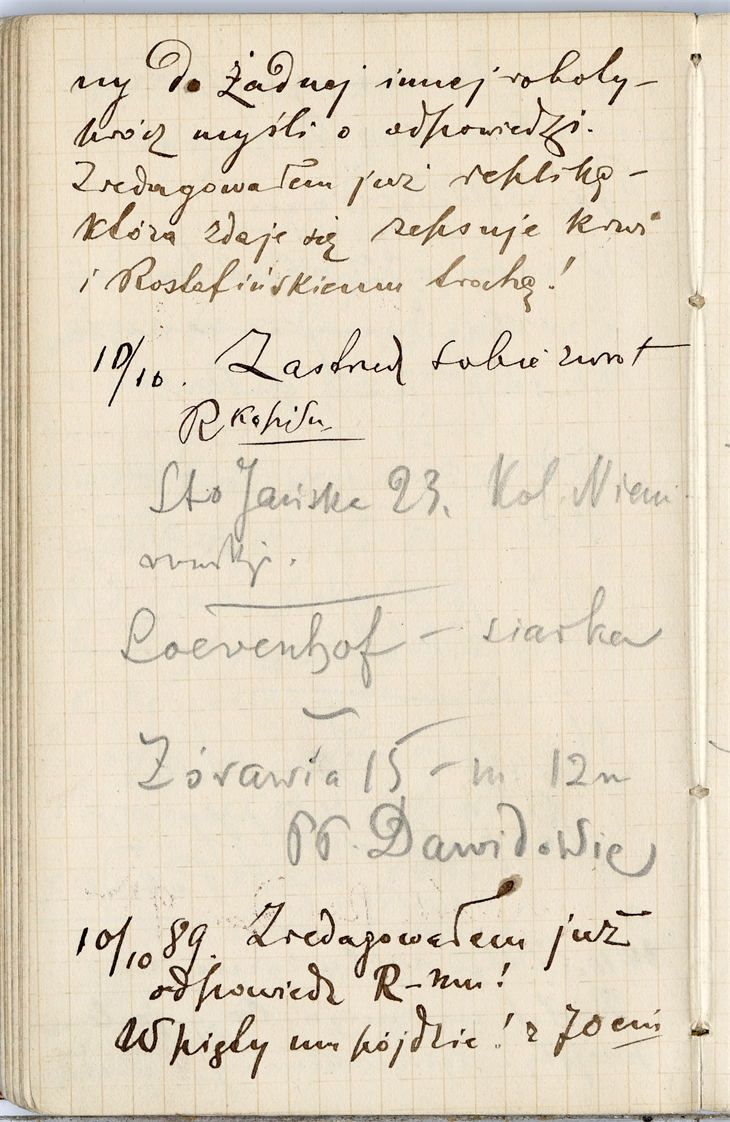 ny do żadnej innej roboty –
prócz myśli o odpowiedzi.
Zredagowałem już replikę –
która zdaje się zepsuje krwi
i Rostafińskiemu trochę!
10/10. Zastrzedz sobie zwrot
Rkopisu
Sto Jańska 23. Kol. Niem
Loevenhof – siarka
Żórawia 15 – m 12
PP. Dawidowie
10/10 89. Zredagowałem już
odpowiedź R–mu!
W pięty mu pójdzie! z 70